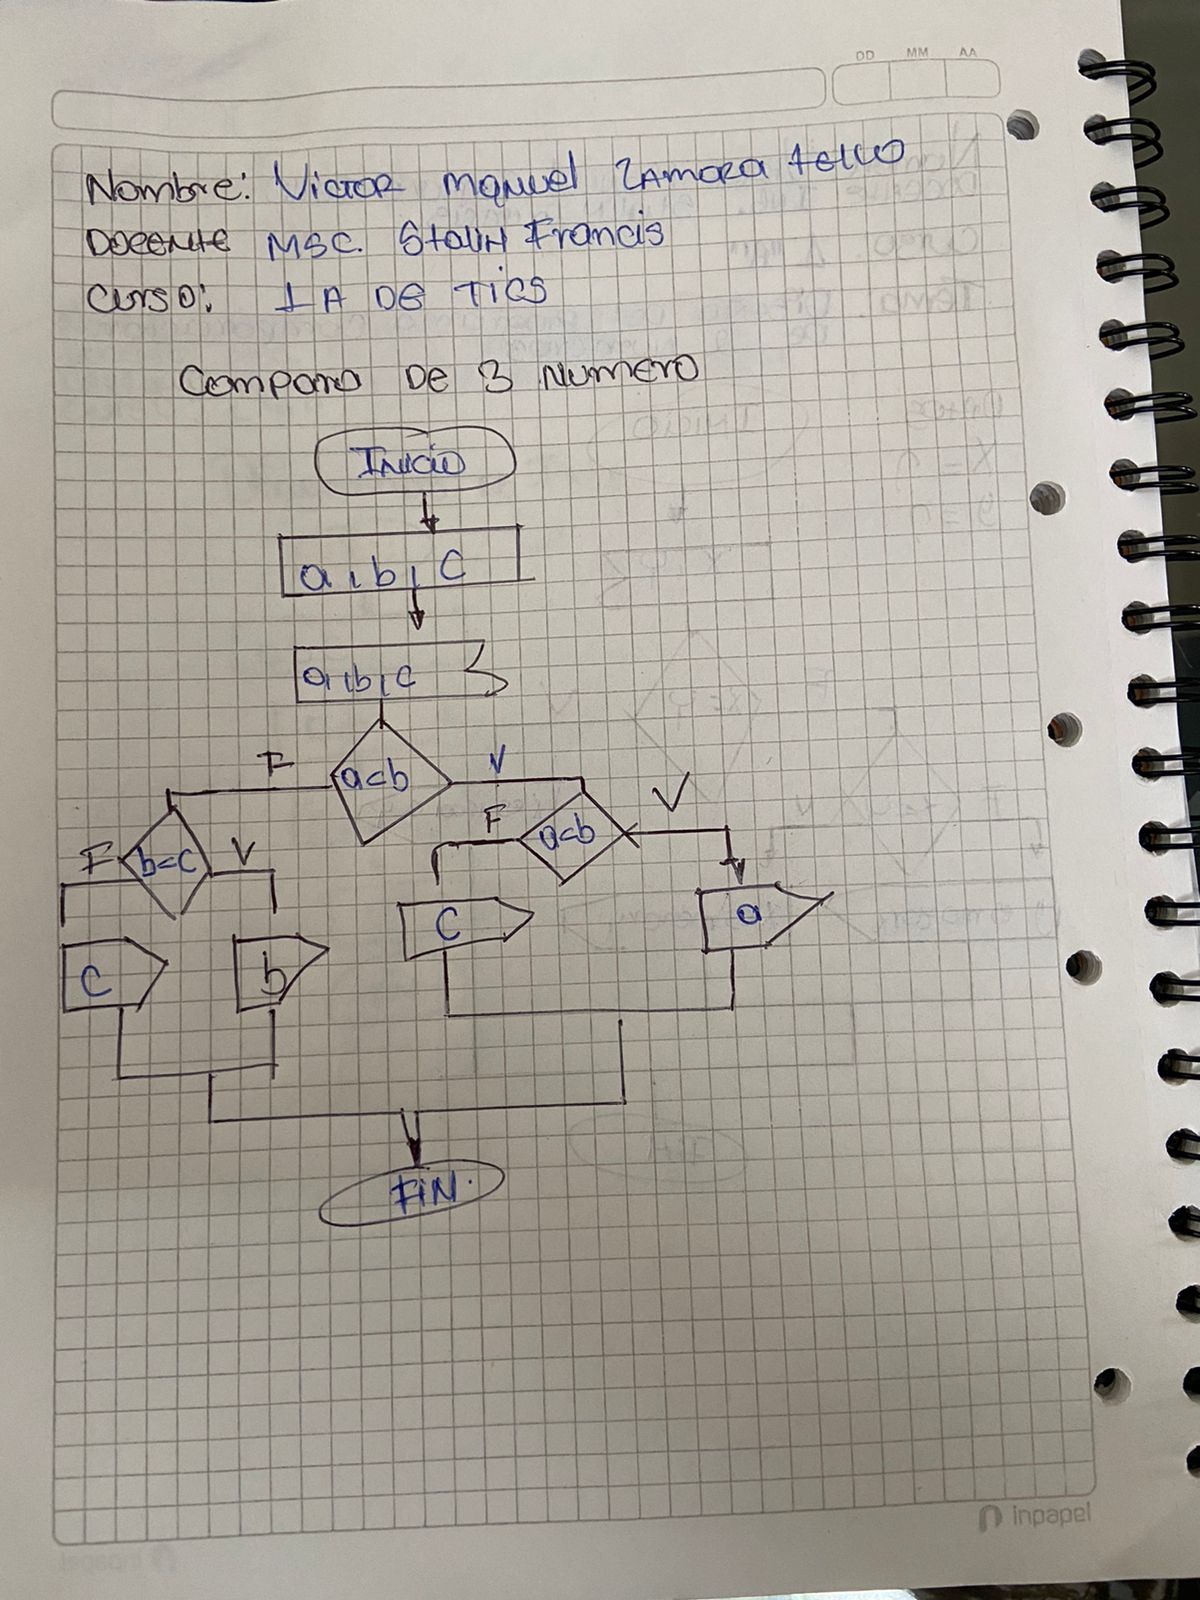 DD MM AA
Nombre: Victor Manuel Zamora Tello
Docente MSC. Stalin Francis
Curso: 1 A DE TICS
Comparo De 3 Numero
Inicio
a, b, c
a, b, c
a<b
F
V
b<c
F
V
a<b
F
V
c
b
c
a
FiN.
inpapel